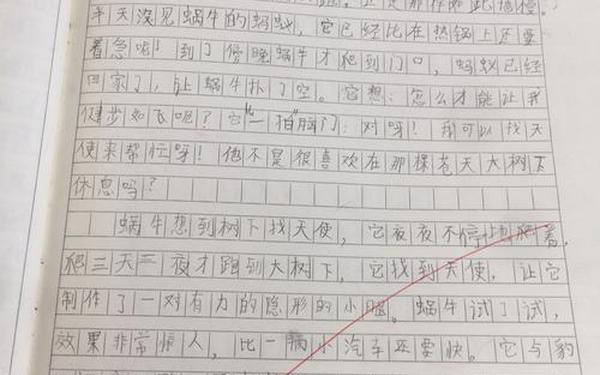 半天没见蜗牛的蚂蚁，它已经比在热锅上还要
着急呢！到了傍晚蜗牛才爬到门口，蚂蚁已经
回家了，让蜗牛扑了空。它想：怎么才能让我
健步如飞呢？它一拍"脑门：对呀！我可以找天
使来帮忙呀！他不是很喜欢在那棵苍天大树下
休息吗？
蜗牛想到树下找天使，它夜夜不停地爬着，
爬三天三夜才跑到大树下，它找到天使，让它
制作了一对有力的隐形的小腿。蜗牛试了试，
效果非常惊人，比一辆小汽车还要快。它与豹